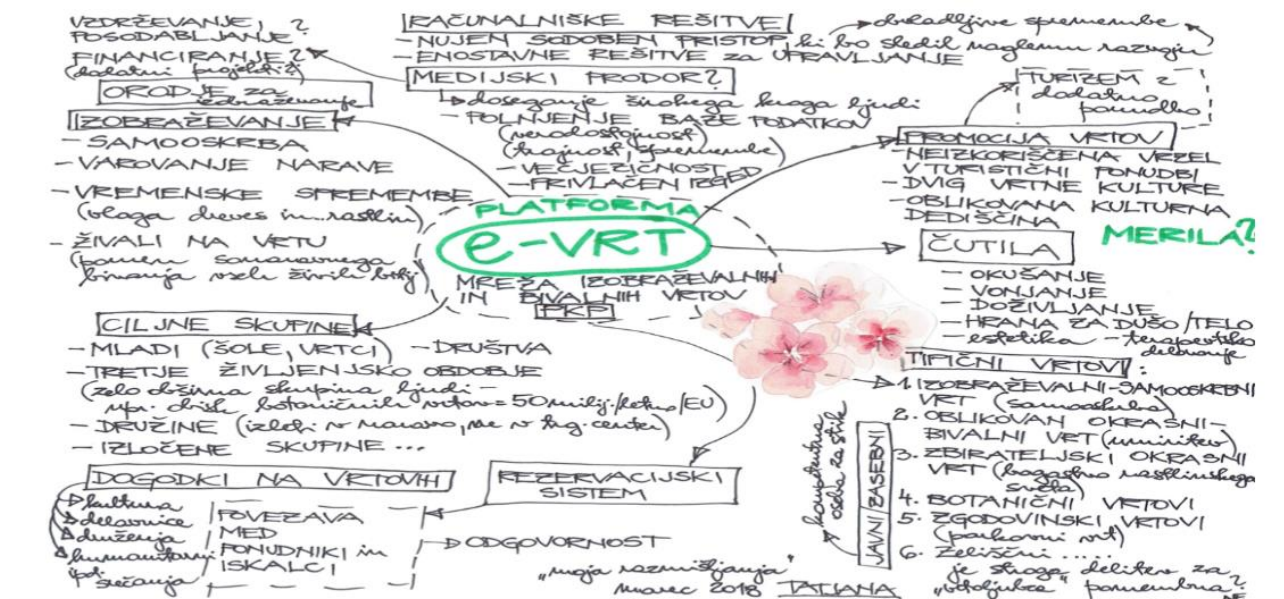 VZDRŽEVANJE, ?
POSODABLJANJE
FINANCIRANJE?
(dodatni projekti?)
ORODJE za
izobraževanje
IZOBRAŽEVANJE
- SAMOOSKRBA
- VAROVANJE NARAVE
- VREMENSKE SPREMEMBE
(vloga dreves in rastlin)
- ŽIVALI NA VRTU
(pomen sonaravnega
bivanja vseh živih bitij)
CILJNE SKUPINE
- MLADI (ŠOLE, VRTCI) - DRUŠTVA
- TRETJE ŽIVLJENJSKO OBDOBJE
(zelo obširna skupina ljudi -
npr. obisk botaničnih vrtov = 50 milij./letno/EU)
- DRUŽINE (izleti v naravo, ne v trg. center)
- IZLOČENE SKUPINE ...
DOGODKI NA VRTOVIH
kultura
delavnice
druženja
humanitarni
srečanja
POVEZAVA
MED
PONUDNIKI in
ISKALCI
REZERVACIJSKI
SISTEM
ODGOVORNOST
RAČUNALNIŠKE REŠITVE
- NUJEN SODOBEN PRISTOP, ki bo sledil naglemu razvoju
- ENOSTAVNE REŠITVE za UPRAVLJANJE
obvladljive spremembe
MEDIJSKI PRODOR?
doseganje širokega kroga ljudi
- POLNJENJE BAZE PODATKOV
(verodostojnost)
(trajnost, spremembe)
- VEČJEZIČNOST
- PRIVLAČEN IZGLED
PLATFORMA
e-VRT
MREŽA IZOBRAŽEVALNIH
IN BIVALNIH VRTOV
PKP
TURIZEM z
dodatno
ponudbo
PROMOCIJA VRTOV
- NEIZKORIŠČENA VRZEL
V TURISTIČNI PONUDBI
- DVIG VRTNE KULTURE
- OBLIKOVANA KULTURNA
DEDIŠČINA
ČUTILA
MERILA?
- OKUŠANJE
- VONJANJE
- DOŽIVLJANJE
- HRANA ZA DUŠO/TELO
- estetika - terapevtsko
delovanje
TIPIČNI VRTOVI:
1. IZOBRAŽEVALNI-SAMOOSKRBNI
VRT (samooskrba)
2. OBLIKOVAN OKRASNI-
BIVALNI VRT (umiritev)
3. ZBIRATELJSKI OKRASNI
VRT (bogastvo rastlinskega
sveta)
4. BOTANIČNI VRTOVI
5. ZGODOVINSKI VRTOVI
(parkovni vrt)
6. Zeliščni .....
je stroga delitev za
pomembna?
NE
JAVNI/ZASEBNI
kompetentna
oseba za stik
"moja razmišljanja"
marec 2018 TATJANA